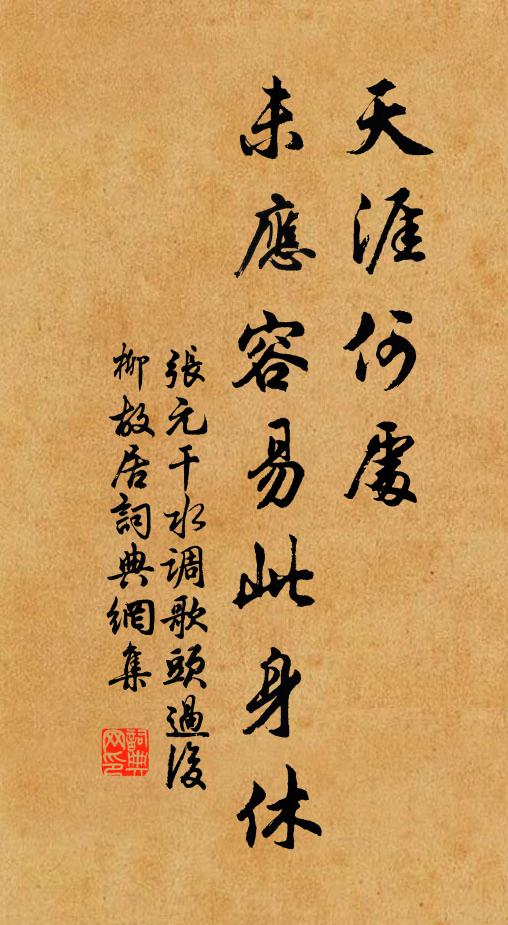 天涯何處
未應容易此身休
張元干水调歌頭過後
柳故居詞典網集
詞典
网印